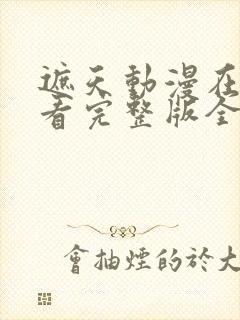 遮天動漫在
看完整版全
會抽煙的於大